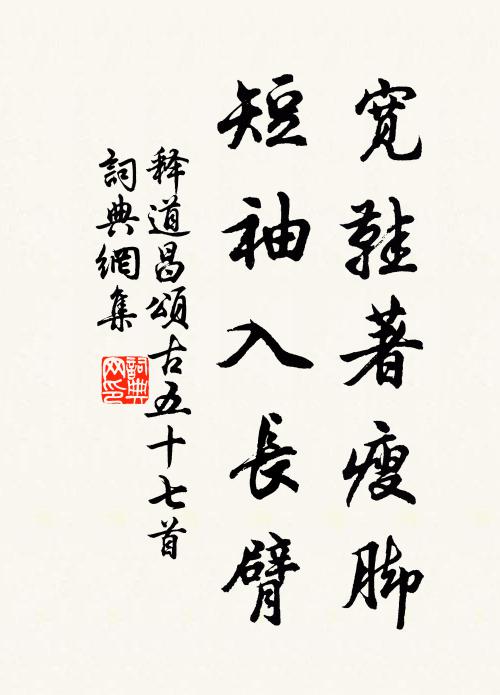 寬鞋著瘦脚
短袖入長臂
释道昌頌古五十七首
詞典網集
詞典网印